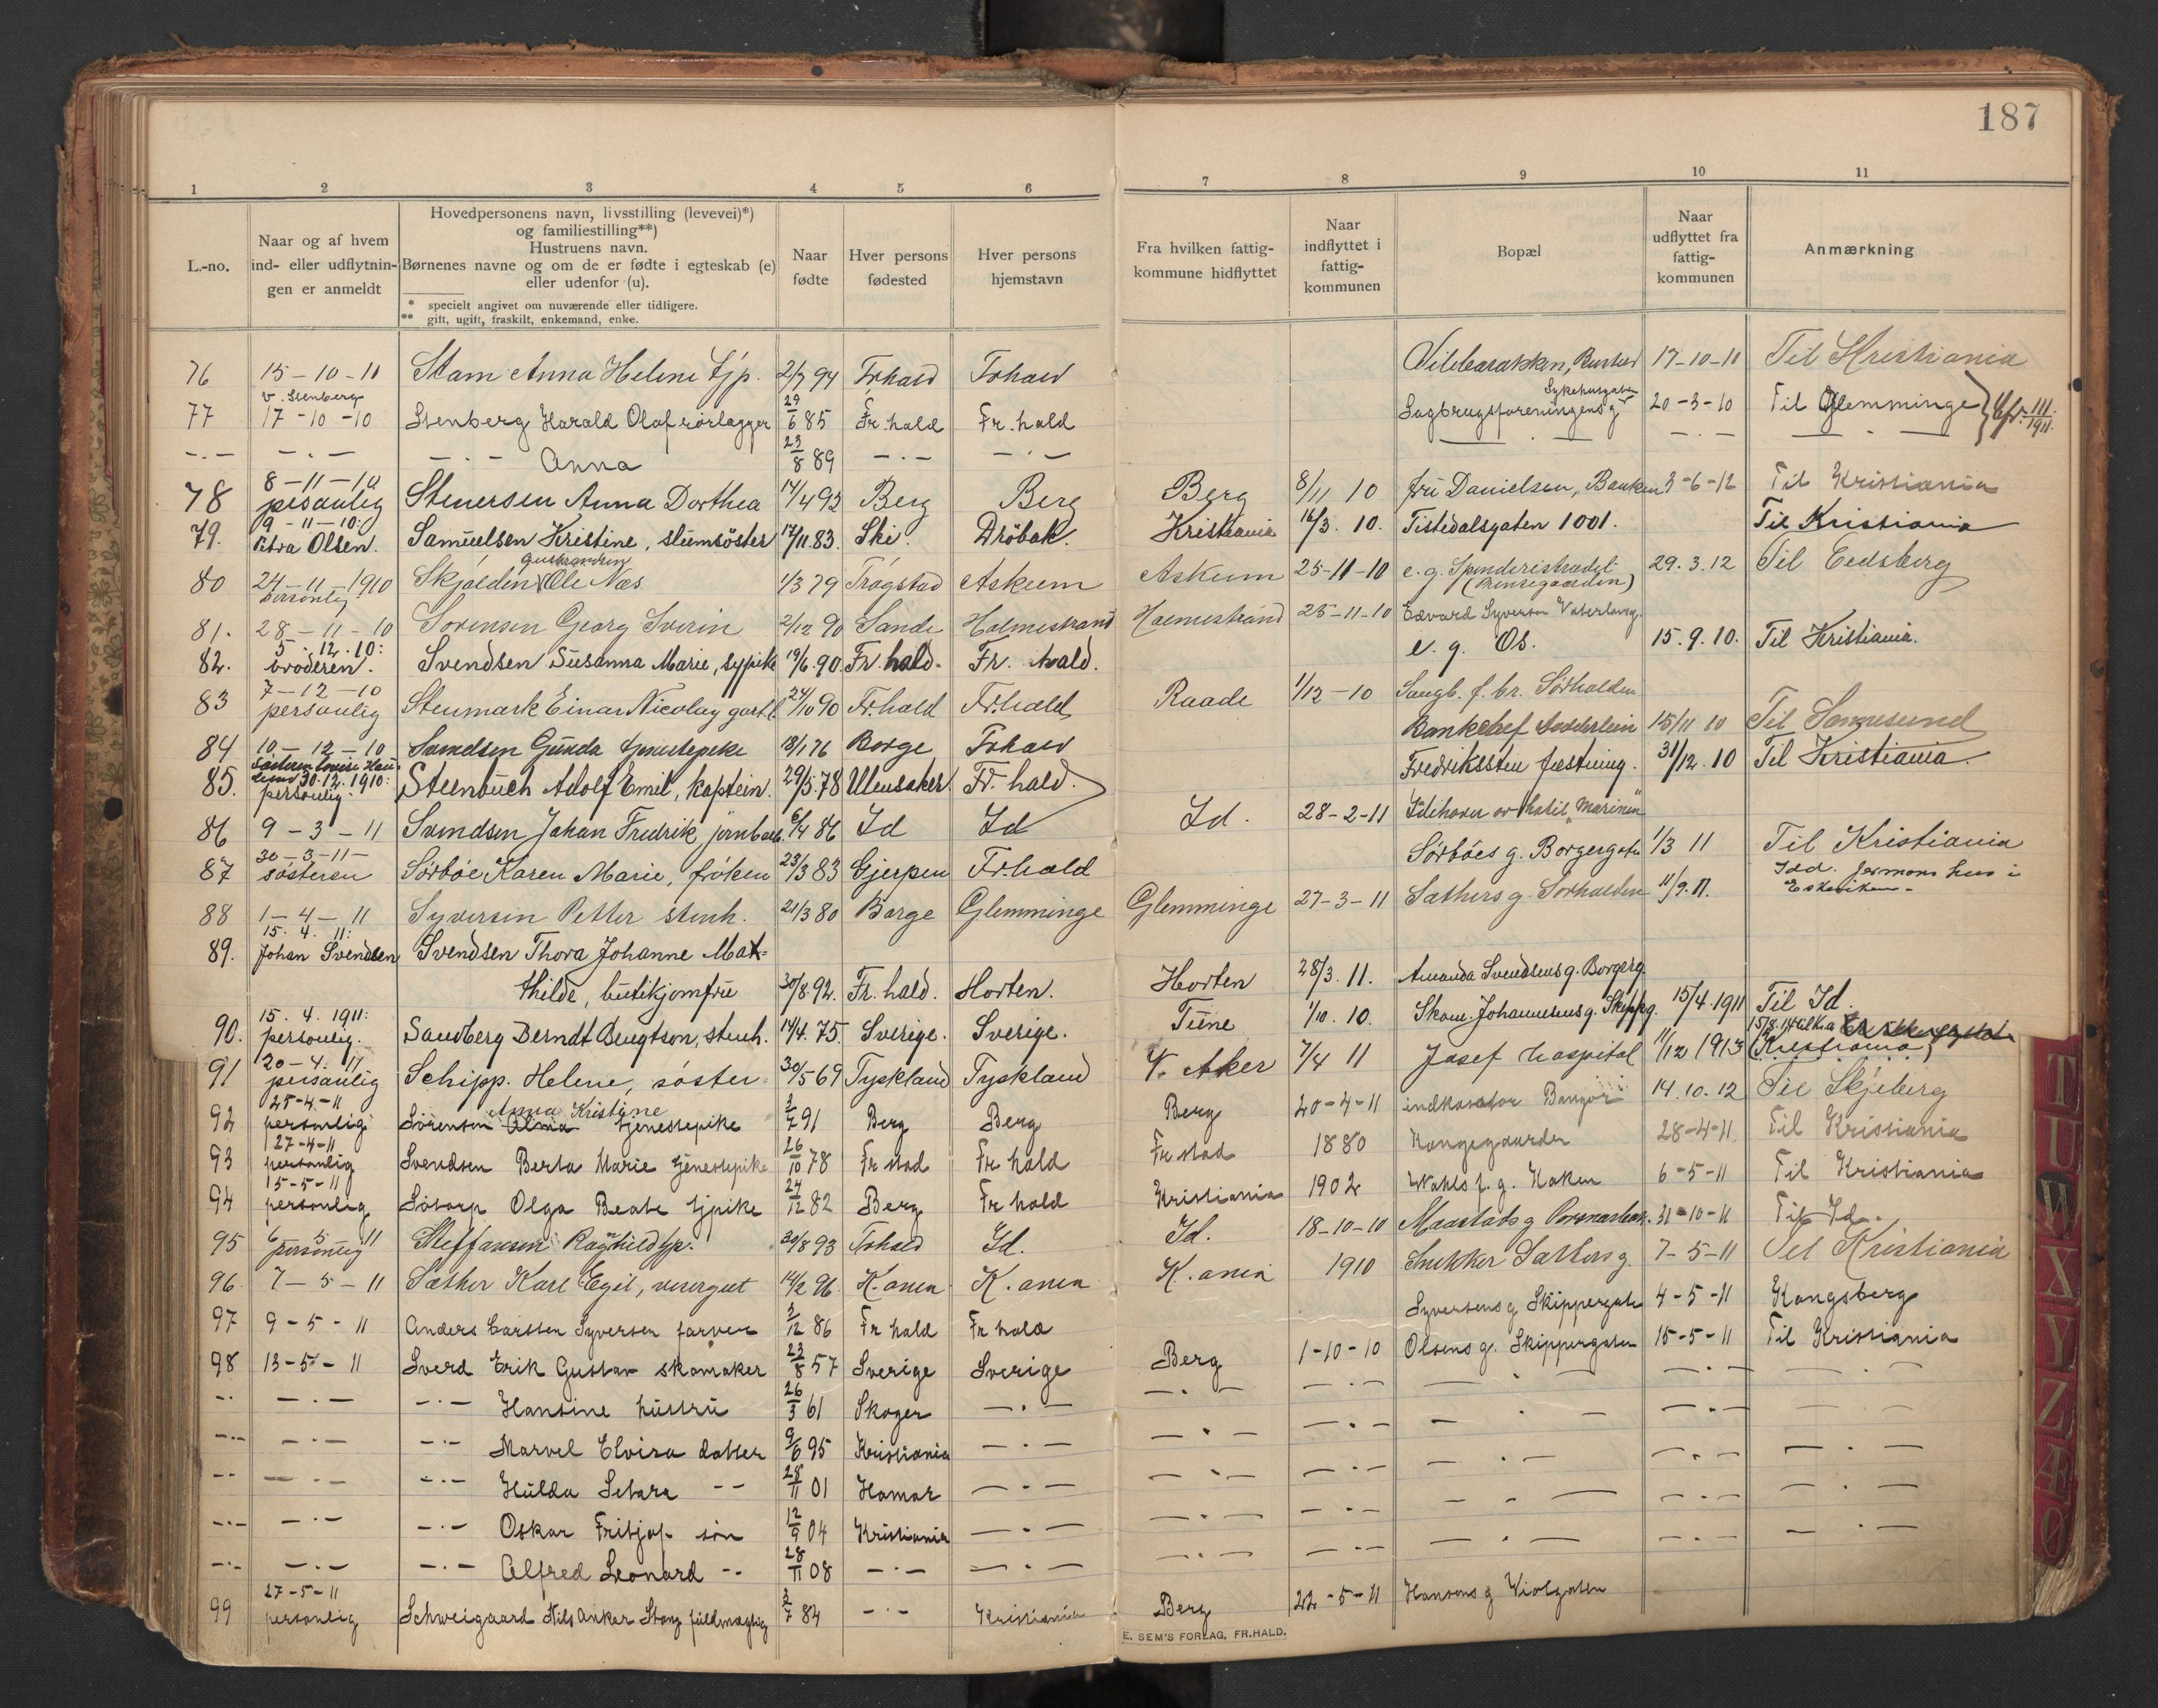 187
1 2 3 4 5 6 7 8 9 10 11
L.-no.
Naar og af hvem ind- eller udflytnin- gen er anmeldt
Hovedpersonens navn, livsstilling (levevei)*)
og familiestilling**)
Hustruens navn.
Børnenes navne og om de er fødte i egteskab (e)
eller udenfor (u).
* specielt angivet om nuværende eller tidligere.
** gift, ugift, fraskilt, enkemand, enke.
Naar fødte
Hver persons fødested
Hver persons hjemstavn
Fra hvilken fattig- kommune hidflyttet
Naar indflyttet i fattig- kommunen
Bopæl
Naar udflyttet fra fattig- kommunen
Anmærkning
76 15-10-11 Stam Anna Helene tjp. 2/7 94 Frhald Frhald 17-10-11 Til Kristiania
v. Stenberg Sykehusgaten
77 17-10-10 Stenberg Harald Olaf rörlægger 29/6 85 Fr.hald Fr.hald Sagbrugsforeningens g 20-3-10 Til Glemminge
-.- -.- -.- Anna 23/8 89 -.- -.- -.- -.-
8-11-10
78 personlig Stenersen Anna Dorthea 17/4 92 Berg Berg Berg 8/11 10 fru Danielsen, Banken 3-6-12 Til Kristiania
9-11-10:
79. Petra Olsen. Samuelsen Kristine, stuensöster 17/11.83. Ski. Dröbak. Kristiania 16/3. 10. Tistedalsgaten 1001. Til Kristiania
80 24-11-1910 personlig Skjolden Ole Næs 1/3 79 Trøgstad Askim Askim 25-11-10 e.g. Spenderistrædet 29.3.12 Til Eidsberg
81. 28-11-10 Sorensen Georg Sverin 2/12 90 Sande Holmestrand Holmestrand 25-11-10 Edvard Syversen Vaterlandg.
5.12.10:
82. broderen. Svendsen Susanna Marie, sypike 19/6.90. Fr.hald. Fr.hald. e.g. Os. 15.9.10. Til Kristiania.
7-12-10
83 personlig Stenmark Einar Nicolay gartn. 24/10 90 Fr.hald Fr.hald Raade 1/12-10 Saugb. f. br. Sörhalden
84 10-12-10 Svendsen Gunda tjenestepike 18/1 76 Borge Frhald Bankchef 15/11 10 Til
30.12.1910:
85. personlig. Steenbuch Adolf Emil, kaptein. 29/5.78 Ullensaker. Fr.hald. Fredriksten fæstning. 31/12.10 Til Kristiania.
86 9-3-11 Svendsen Johan Fredrik jernbarb. 6/4 86 Id Id Id. 28-2-11
30-3-11-
87 søsteren Sörböe Karen Marie, fröken 23/3 83 Gjerpen Fr.hald Sörböes g. Borgergaten 1/3 11 Til Kristiania
88 1-4-11 Syversen Petter stenh. 21/3 80 Borge Glemminge Glemminge 27-3-11 Sathers g. Sorhalden 11/9.11. Idd. Jermans hus i
15.4.11:
89. Johan Svendsen Svendsen Thora Johanne Mat-
thilde, butikjomfru 30/8.92. Fr.hald. Horten. Horten 28/3.11. Amanda Svendsens g. Borgerg.
15.4.1911:
90. personlig. Sandberg Berndt Bengtson, stenh. 14/4.75. Sverige. Sverige. Tune 1/10.10. Skom. Johannesens g. Skipperg. 15/4.1911 Til Id.
20-4-11
91 personlig Schipp. Helene, søster 30/5 69 Tyskland Tyskland V. Aker 7/4 11 Josef hospital 11/12 1913 (Kristiania)
25-4-11 Anna Kristine
92 personlig Sörensen Alma tjenestepike 2/7 91 Berg Berg Berg 20-4-11 indkassator 14.10.12 Til Skjeberg
27-4-11
93 personlig Svendsen Berta Marie tjenestepike 26/10 78 Fr stad Fr hald Fr stad 1880 Kongegaarden 28-4-11 Til Kristiania
15-5-11
94 personlig Sötorp Olga Beate tjpike 24/12 82 Berg Fr hald Kristiania 1902 Wahls f.g. Haken 6-5-11 Til Kristiania
95 6 5 11 personlig Steffansen Ragnhild tjp. 30/8 93 Frhald Id. Id. 18-10-10 Maastads g 31-10-11 Til Id.
96. 7-5-11 Sather Karl Egil, visergut 14/2 96. K.ania K.ania K.ania 1910 Snekker Sathers g. 7-5-11 Til Kristiania
97 9-5-11 Anders Carsten Syversen farver 2/12 86 Fr hald Fr hald Syversens g Skippergaten 4-5-11 Kongsberg
98 13-5-11 Sverd Erik Gustav skomaker 23/8 57 Sverige Sverige Berg 1-10-10 Olsens g. Skippergaten 15-5-11 Til Kristiania
-.- -.- -.- Hansine hustru 26/3 61 Skoger -.- -.- -.- -.- -.- -.-
-.- -.- -.- Marvel Elvira datter 9/6 95 Kristiania -.- -.- -.- -.- -.- -.-
-.- -.- -.- Hulda Sebara -- 28/11 01 Hamar -.- -.- -.- -.- -.- -.-
-.- -.- -.- Oskar Fritjof sön 12/9 04 Kristiania -.- -.- -.- -.- -.- -.-
-.- -.- -.- Alfred Leonard -- 28/11 08 -.- -.- -.- -.- -.- -.- -.-
27-5-11
99 personlig Schweigaard Nils Anker Stang fuldmægtig 2/7 84 -.- Kristiania Berg 22-5-11 Hansens g Violgaten
E. SEM'S FORLAG, FR.HALD.
T U W X Y Z Æ Ø